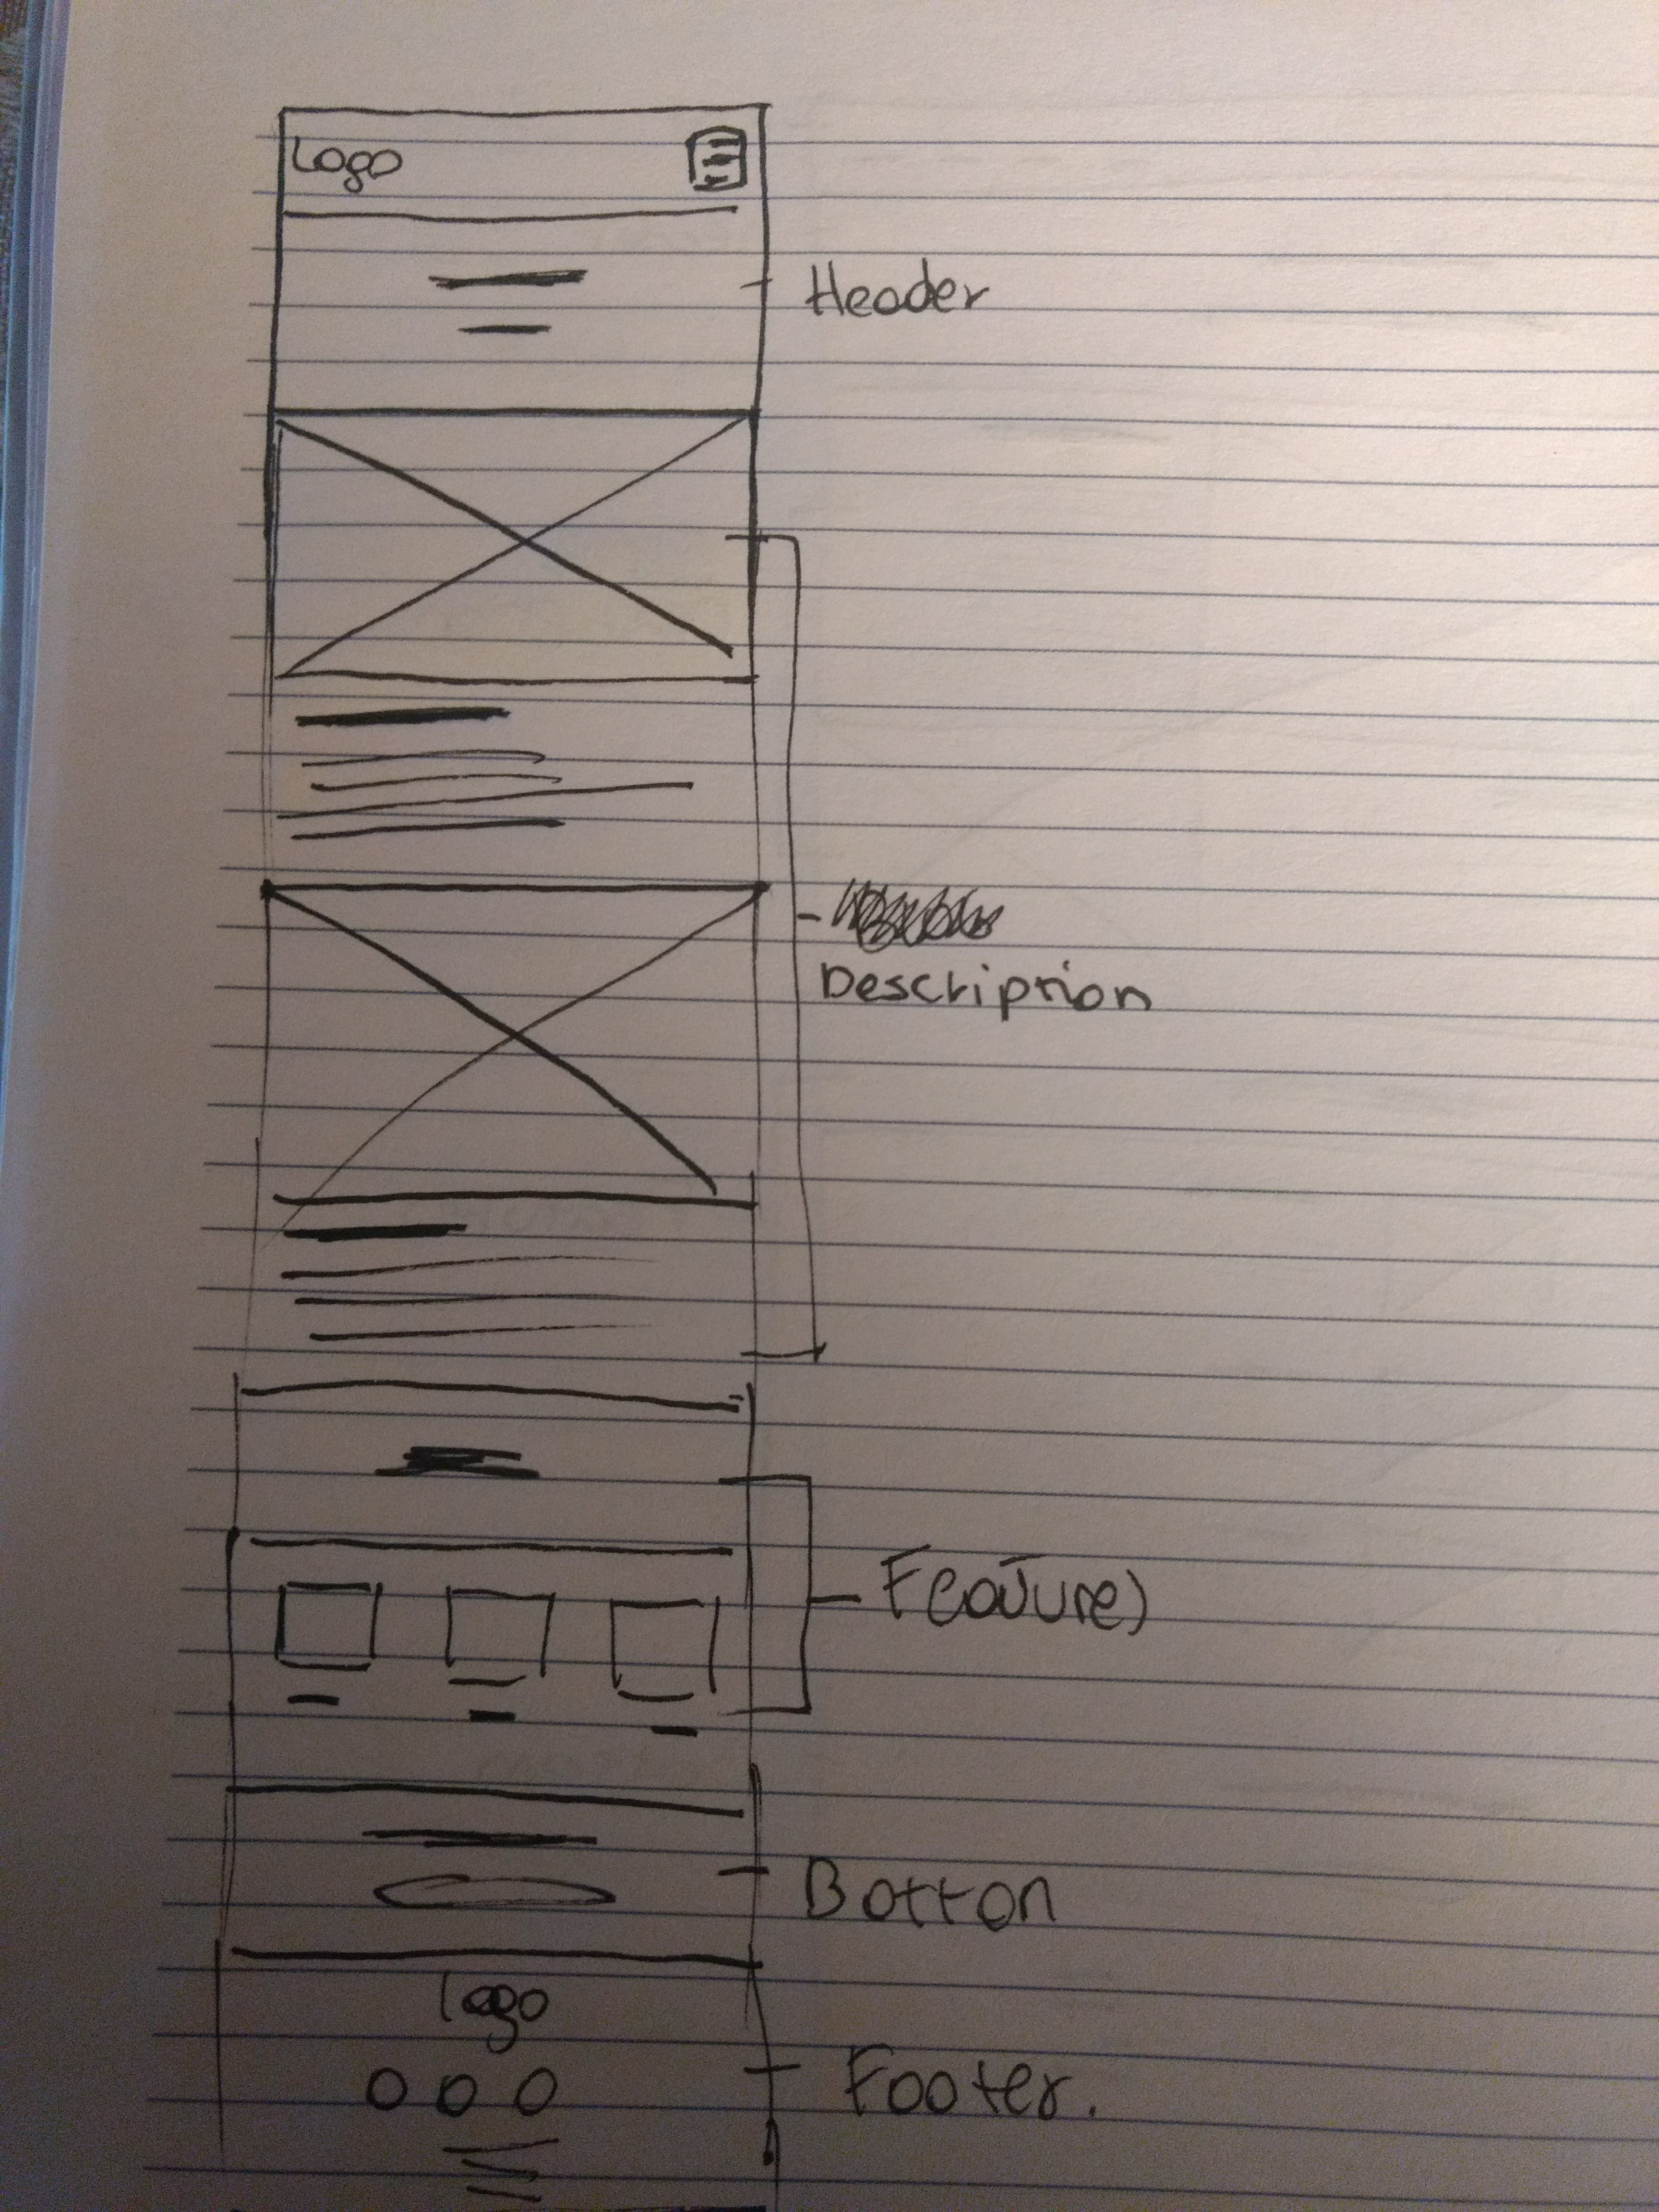 Logo
Header
Description
Features
Botton
logo
Footer.